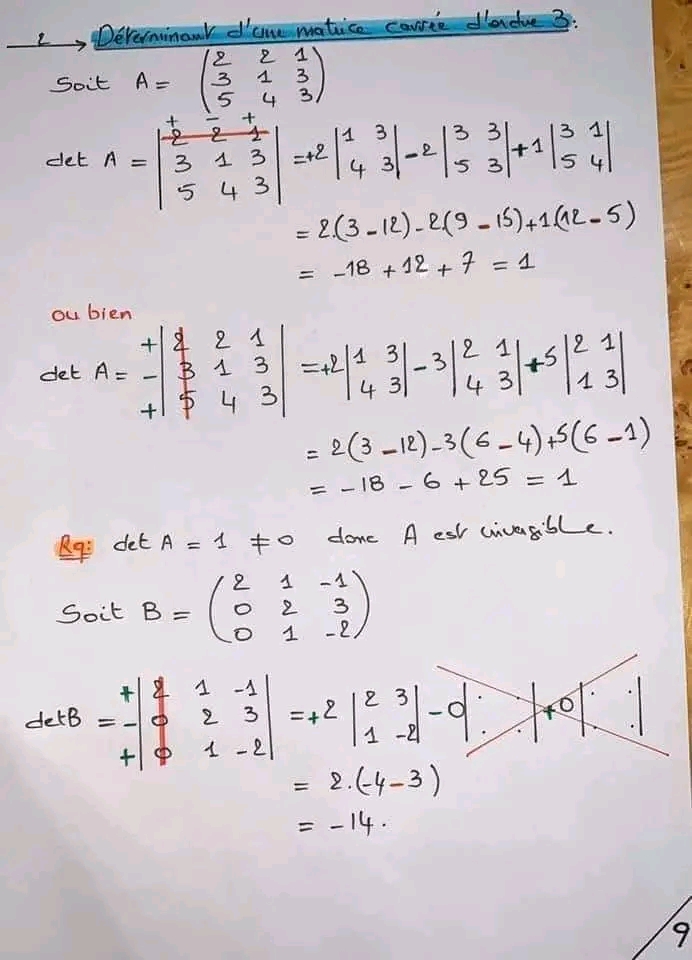 2 → Déterminant d'une matrice carrée d'ordre 3:
Soit A = ( 2 2 1
3 1 3
5 4 3 )
+ - +
det A = | 2 2 1
3 1 3
5 4 3 | = +2 | 1 3
4 3 | - 2 | 3 3
5 3 | + 1 | 3 1
5 4 |
= 2.(3 - 12) - 2(9 - 15) + 1.(12 - 5)
= -18 + 12 + 7 = 1
ou bien
det A = + - + | 2 2 1
3 1 3
5 4 3 | = +2 | 1 3
4 3 | - 3 | 2 1
4 3 | + 5 | 2 1
1 3 |
= 2(3 - 12) - 3(6 - 4) + 5(6 - 1)
= -18 - 6 + 25 = 1
Rq: det A = 1 ≠ 0 donc A est inversible.
Soit B = ( 2 1 -1
0 2 3
0 1 -2 )
det B = + - + | 2 1 -1
0 2 3
0 1 -2 | = +2 | 2 3
1 -2 | - 0 | . .
. . | + 0 | . .
. . |
= 2.(-4 - 3)
= -14.
9